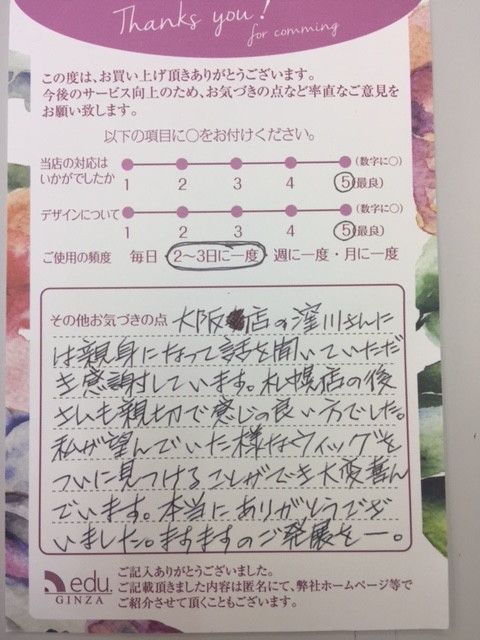 Thanks you!
for comming
この度は、お買い上げ頂きありがとうございます。
今後のサービス向上のため、お気づきの点など率直なご意見を
お願い致します。
以下の項目に○をお付けください。
当店の対応は
いかがでしたか
1 2 3 4 5 (最良)
(数字に○)
デザインについて
1 2 3 4 5 (最良)
(数字に○)
ご使用の頻度 毎日 2〜3日に一度 週に一度・月に一度
その他お気づきの点 大阪店の窪川さんに
は親身になって話を聞いていただ
き感謝しています。札幌店の後
さんも親切で感じの良い方でした。
私が望んでいた様なウィッグを
ついに見つけることができ大変喜ん
でいます。本当にありがとうござ
いました。ますますのご発展を―。
edu.
GINZA
ご記入ありがとうございました。
ご記載頂きました内容は匿名にて、弊社ホームページ等で
ご紹介させて頂くこともございます。